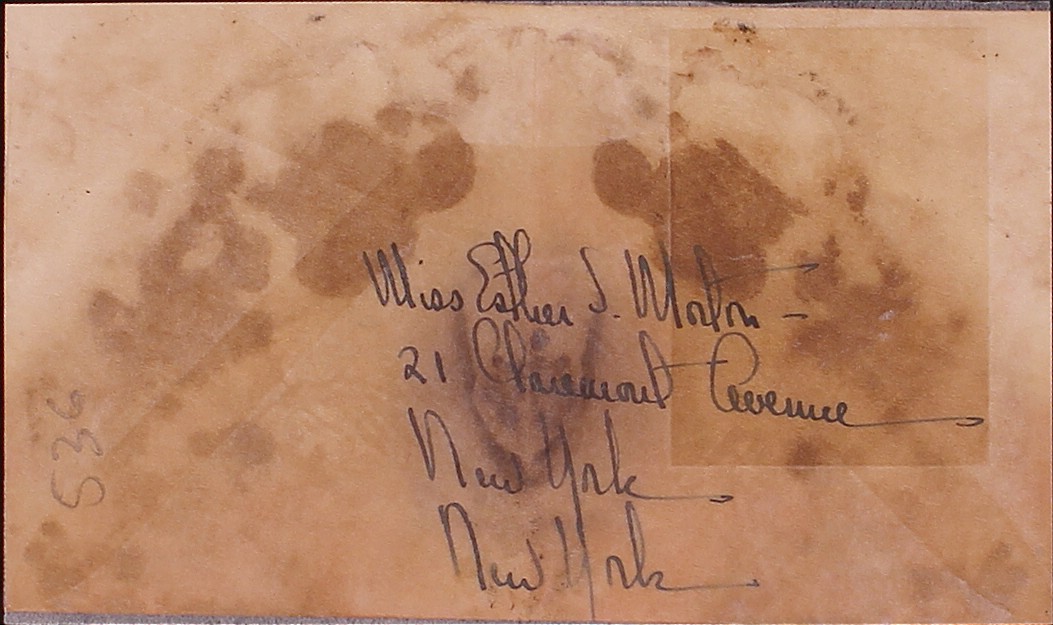 Miss Esther S. Morton -
21 Claremont Avenue
New York
New York
536